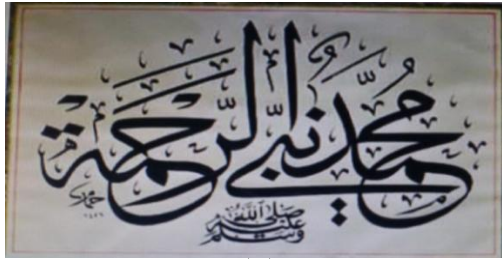 مُحَمَّدٌ نَبِيُّ الرَّحْمَةِ
صلى الله عليه وسلم